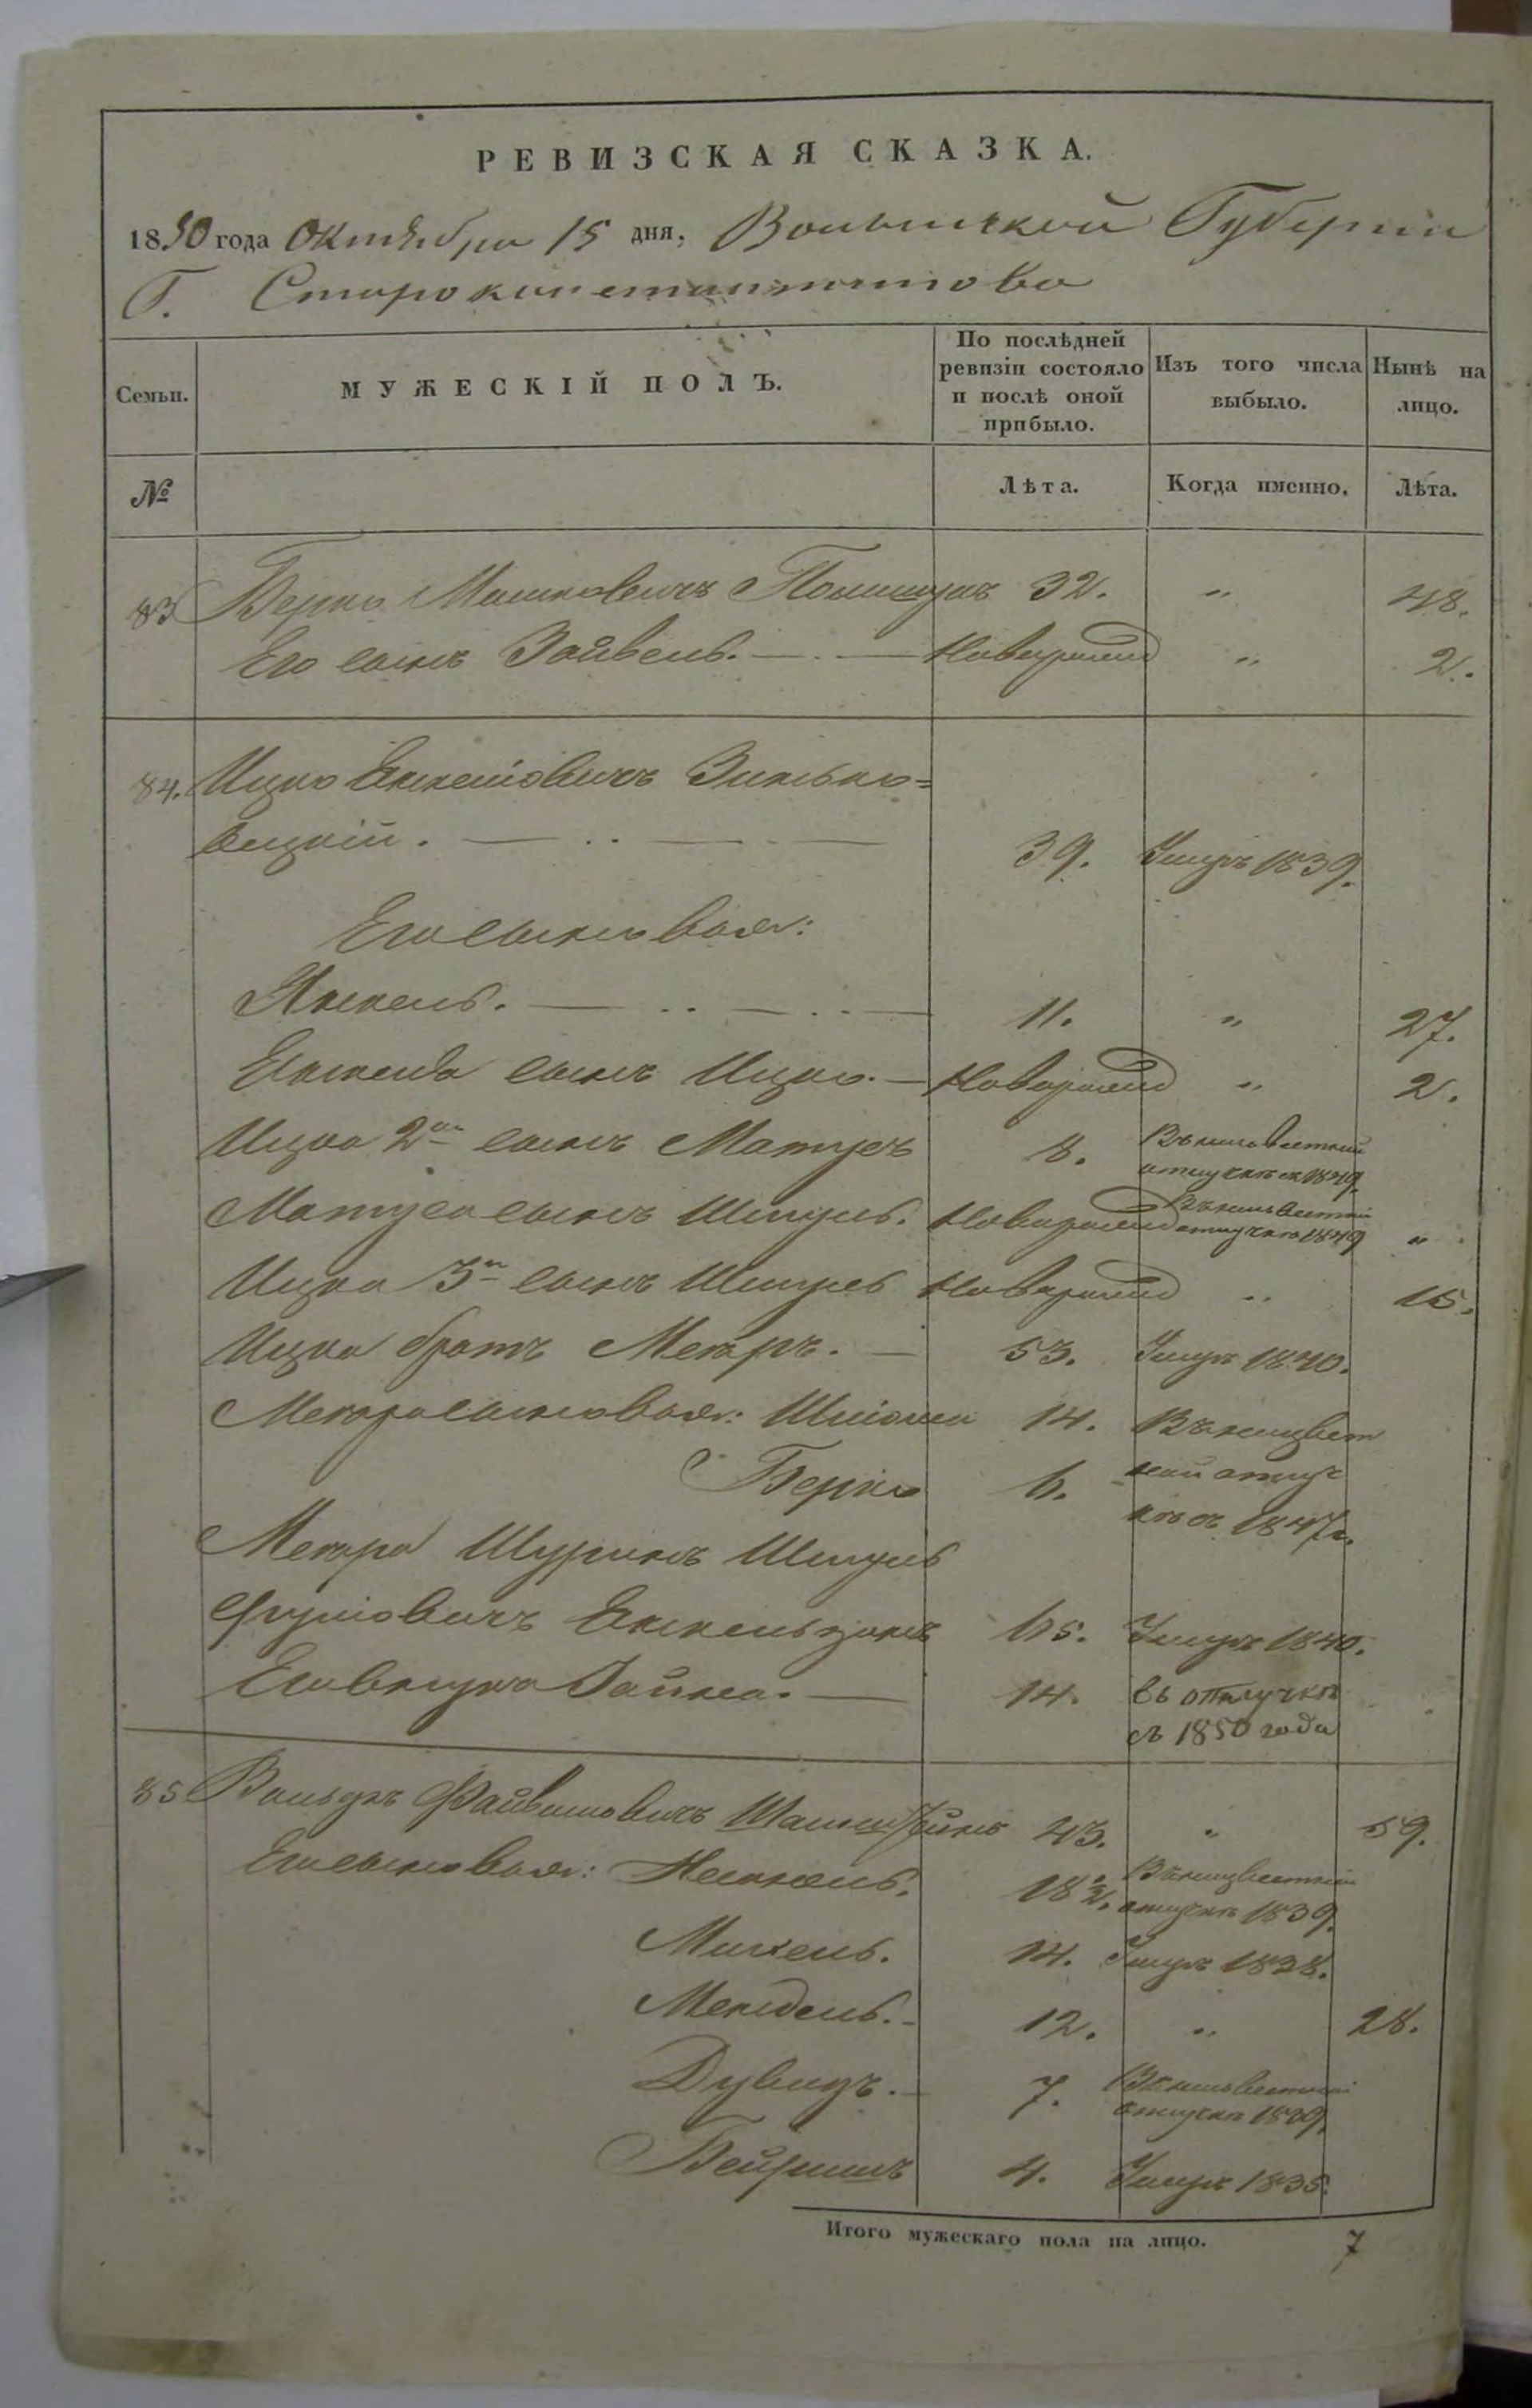 РЕВИЗСКАЯ СКАЗКА.
1850 года Октября 15 дня, Волынской Губернии
Г. Староконстантинова
Семьи.
МУЖЕСКІЙ ПОЛЪ.
По послѣдней ревизіи состояло и послѣ оной прибыло.
Изъ того числа выбыло.
Нынѣ на лицо.
№
Лѣта.
Когда именно.
Лѣта.
83 Берко Машковичъ 32. " 48.
Его сынъ Зайвель. — Новорожд " 2.
84. Ицко Янкеліовичъ Зинько=
вецкій. — 39. Умеръ 1839.
Его сыновья:
Янкель. — 11. " 27.
Янкеля сынъ Ицко. — Новорожд " 2.
Ицка 2й сынъ Матусъ 8. Въ неизвестной
отлучке съ 1849.
Матуса сынъ Шмуль. Новорожд Въ неизвестной
отлучке 1849 "
Ицка 3й сынъ Шмуль Новорожд " 15.
Ицка братъ Мееръ. — 53. Умеръ 1840.
Меера сыновья: Шлiома 14. Въ неизвест
Берко 6. ной отлуч
ке съ 1847г.
Меера Шуринъ Шмуль
Сруліовичъ Янкельзонъ 65. Умеръ 1840.
Его внукъ — 14. въ отлучке
съ 1850 года
85 Вольфъ Файвишовичъ 43. " 59.
Его сыновья: 18½. Въ неизвестной
отлучке 1839.
Михель. 14. Умеръ 1838.
Мендель. 12. " 28.
Дувидъ. 7. Въ неизвестной
отлучке 1839.
Бейришъ 4. Умеръ 1835.
Итого мужескаго пола на лицо. 7